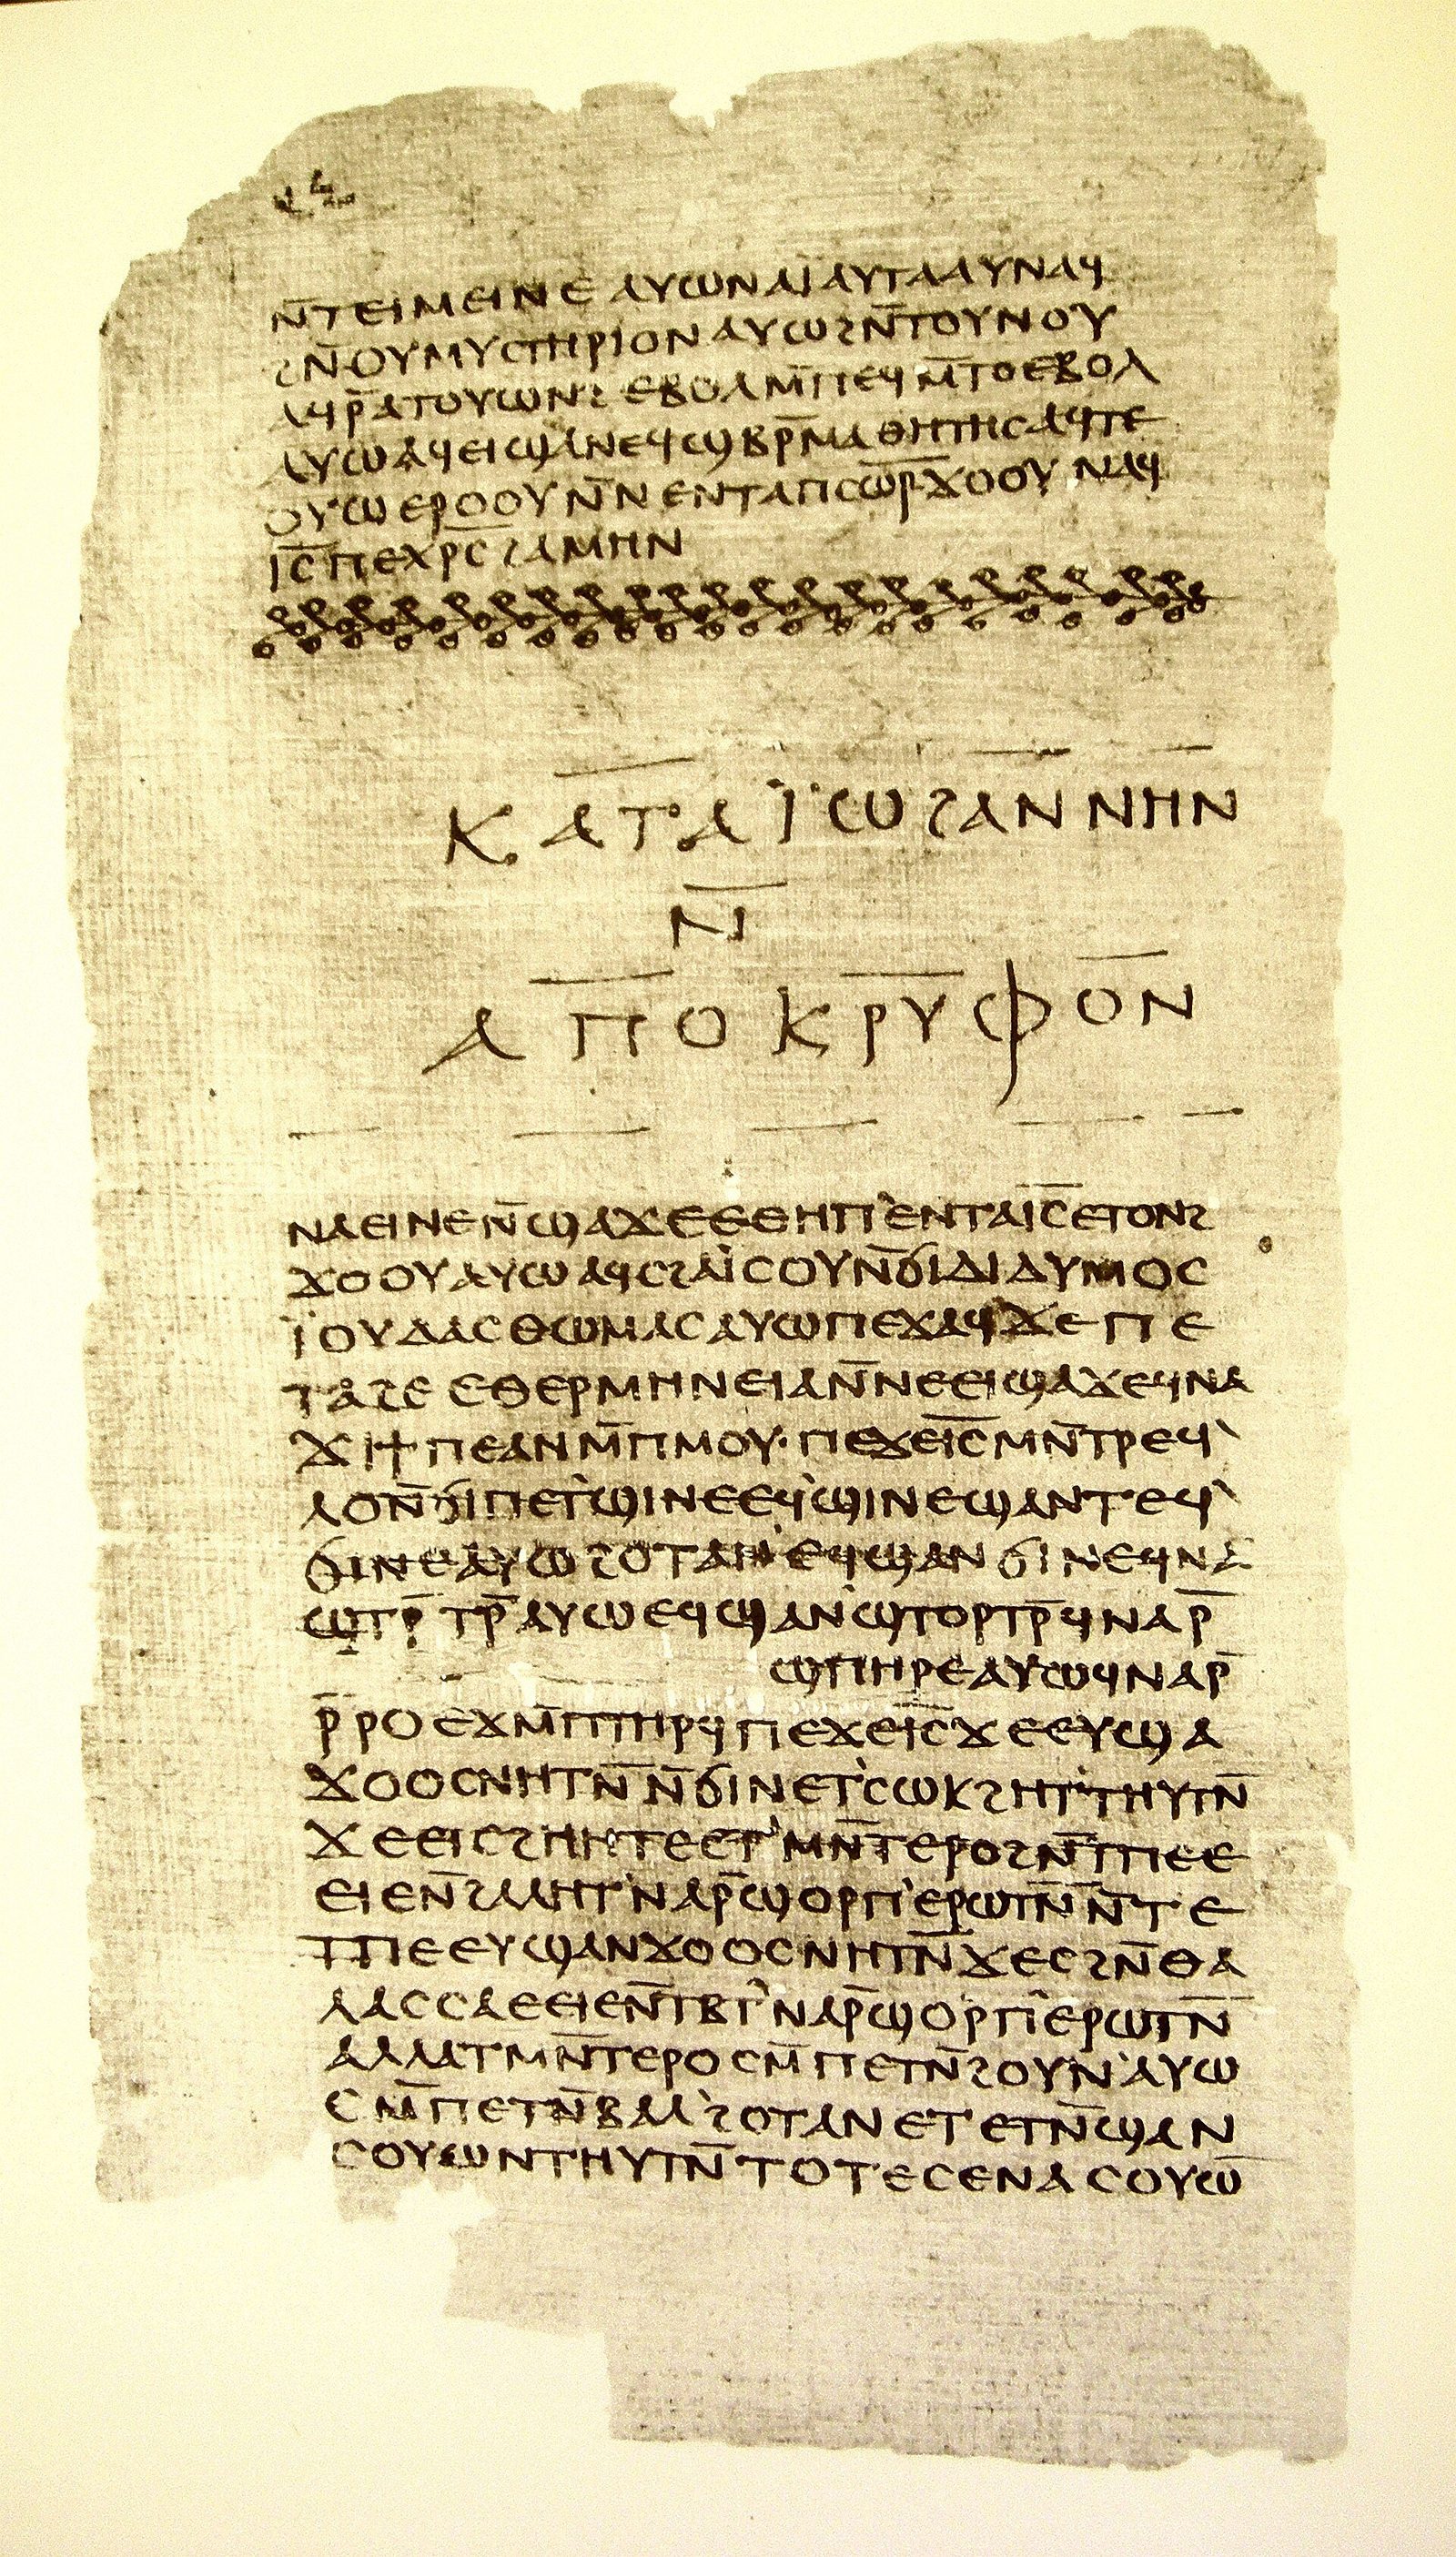 ⲛ̄ⲧⲉⲓⲙⲉⲓⲛⲉ ⲁⲩⲱ ⲛⲁⲓ̈ ⲁⲩⲧⲁⲁⲩ ⲛⲁϥ
ϩⲛ̄ ⲟⲩⲙⲩⲥⲧⲏⲣⲓⲟⲛ ⲁⲩⲱ ϩⲛ̄ ⲧⲟⲩⲛⲟⲩ
ⲁϥⲣ̄ ⲁⲧⲟⲩⲱⲛϩ ⲉⲃⲟⲗ ⲙ̄ⲡⲉϥⲙ̄ⲧⲟ ⲉⲃⲟⲗ
ⲁⲩⲱ ⲁϥⲉⲓ ϣⲁ ⲛⲉϥϣⲃⲣ̄ⲙⲁⲑⲏⲧⲏⲥ ⲁϥⲧⲉ
ⲟⲩⲱ ⲉⲣⲟⲟⲩ ⲛ̄ⲛⲉⲛⲧⲁ ⲡⲥⲱ̅ⲣ̅ ϫⲟⲟⲩ ⲛⲁϥ
ⲓ̅ⲥ̅ ⲡⲉⲭⲣ̅ⲥ̅ ϩⲁⲙⲏⲛ
ⲕⲁⲧⲁ ⲓ̈ⲱϩⲁⲛⲛⲏⲛ
ⲛ̄
ⲁⲡⲟⲕⲣⲩⲫⲟⲛ
ⲛⲁⲉⲓ ⲛⲉ ⲛ̄ϣⲁϫⲉ ⲉⲑⲏⲡ' ⲉⲛⲧⲁ ⲓ̅ⲥ̅ ⲉⲧⲟⲛϩ
ϫⲟⲟⲩ ⲁⲩⲱ ⲁϥⲥϩⲁⲓ̈ⲥⲟⲩ ⲛ̄ϭⲓ ⲇⲓⲇⲩⲙⲟⲥ
ⲓ̈ⲟⲩⲇⲁⲥ ⲑⲱⲙⲁⲥ ⲁⲩⲱ ⲡⲉϫⲁϥ ϫⲉ ⲡⲉ
ⲧⲁϩⲉ ⲉⲑⲉⲣⲙⲏⲛⲉⲓⲁ ⲛ̄ⲛⲉⲉⲓϣⲁϫⲉ ϥⲛⲁ
ϫⲓ ϯⲡⲉ ⲁⲛ ⲙ̄ⲡⲙⲟⲩ· ⲡⲉϫⲉ ⲓ̅ⲥ̅ ⲙⲛ̄ⲧⲣⲉϥ'
ⲗⲟ ⲛ̄ϭⲓ ⲡⲉⲧ'ϣⲓⲛⲉ ⲉϥ'ϣⲓⲛⲉ ϣⲁⲛⲧⲉϥ'
ϭⲓⲛⲉ ⲁⲩⲱ ϩⲟⲧⲁⲛ' ⲉϥϣⲁⲛϭⲓⲛⲉ ϥⲛⲁ
ϣⲧⲣ̄ⲧⲣ̄ ⲁⲩⲱ ⲉϥϣⲁⲛ'ϣⲧⲟⲣⲧⲣ̄ ϥⲛⲁⲣ̄
ϣⲡⲏⲣⲉ ⲁⲩⲱ ϥⲛⲁⲣ̄
ⲣ̄ⲣⲟ ⲉϫⲙ̄ ⲡⲧⲏⲣϥ ⲡⲉϫⲉ ⲓ̅ⲥ̅ ϫⲉ ⲉⲩϣⲁ
ϫⲟⲟⲥ ⲛⲏⲧⲛ̄ ⲛ̄ϭⲓ ⲛⲉⲧ'ⲥⲱⲕ ϩⲏⲧ' ⲧⲏⲩⲧⲛ̄
ϫⲉ ⲉⲓⲥϩⲏⲏⲧⲉ ⲉⲧ'ⲙⲛ̄ⲧⲉⲣⲟ ϩⲛ̄ ⲧⲡⲉ ⲉ
ⲉⲓⲉ ⲛ̄ϩⲁⲗⲏⲧ' ⲛⲁⲣ̄ ϣⲟⲣⲡ' ⲉⲣⲱⲧⲛ̄ ⲛ̄ⲧⲉ
ⲧⲡⲉ ⲉⲩϣⲁⲛϫⲟⲟⲥ ⲛⲏⲧⲛ̄ ϫⲉ ⲥϩⲛ̄ ⲑⲁ
ⲗⲁⲥⲥⲁ ⲉⲉⲓⲉ ⲛ̄ⲧⲃⲧ' ⲛⲁⲣ̄ ϣⲟⲣⲡ' ⲉⲣⲱⲧⲛ̄
ⲁⲗⲗⲁ ⲧⲙⲛ̄ⲧⲉⲣⲟ ⲥⲙ̄ⲡⲉⲧⲛ̄ϩⲟⲩⲛ' ⲁⲩⲱ
ⲥⲙ̄ⲡⲉⲧⲛ̄ⲃⲁⲗ' ϩⲟⲧⲁⲛ ⲉⲧⲉⲧⲛ̄ϣⲁⲛ
ⲥⲟⲩⲱⲛ ⲧⲏⲩⲧⲛ̄ ⲧⲟⲧⲉ ⲥⲉⲛⲁⲥⲟⲩⲱ̄